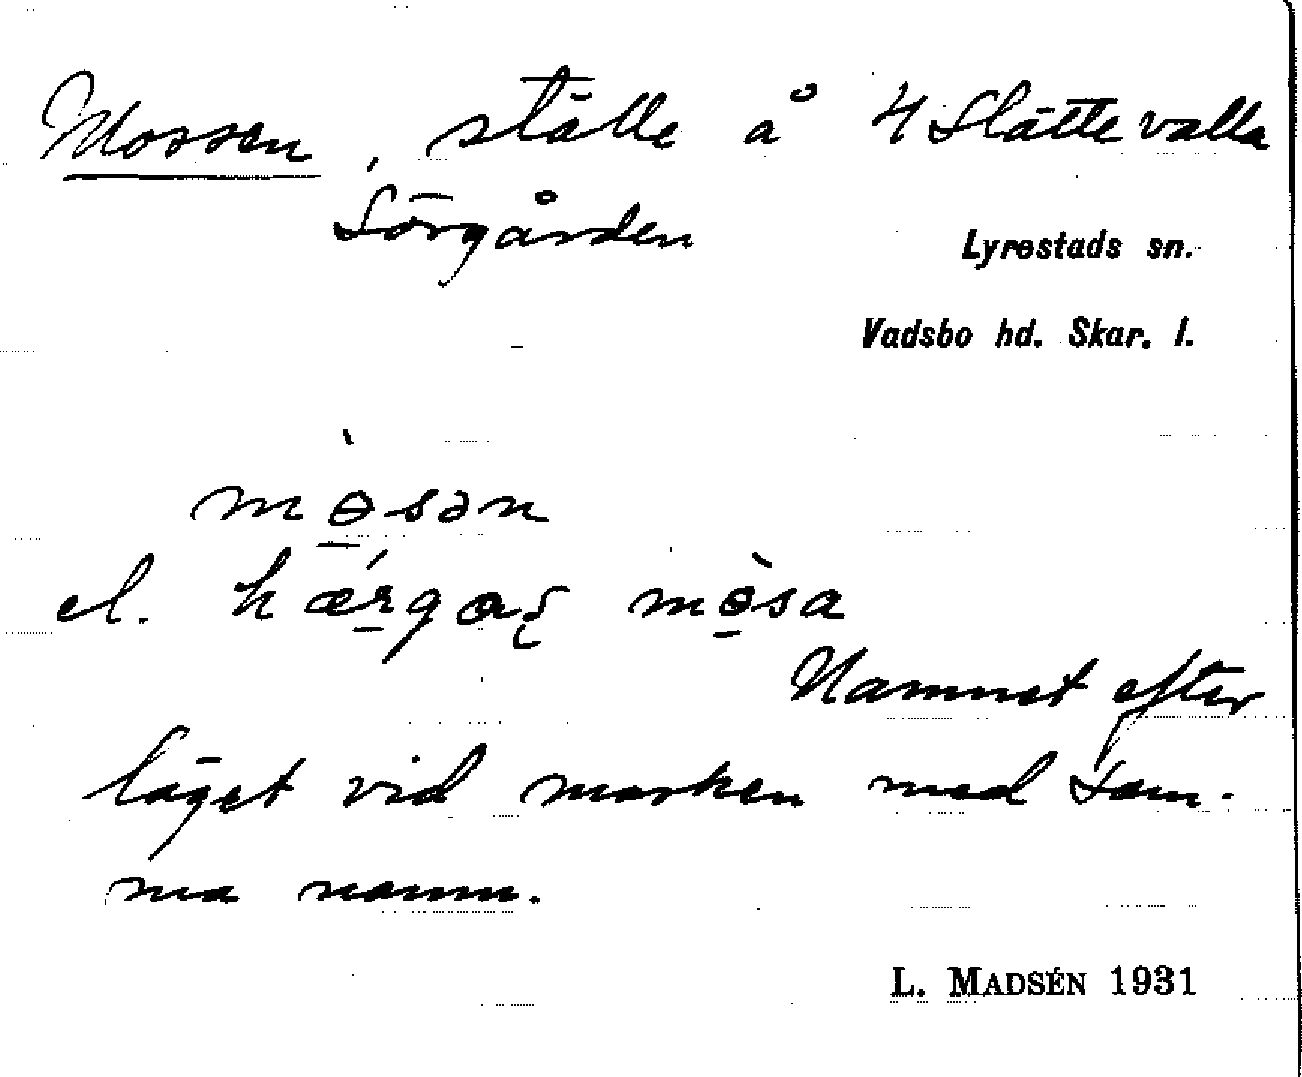 Mossen, ställe å 4 Slättevalla
Sörgården
Lyrestads sn.
Vadsbo hd. Skar. l.
mòsən
el. hærgaʂ mòsa
Namnet efter
läget vid marken med sam-
ma namn.
L. MADSÉN 1931